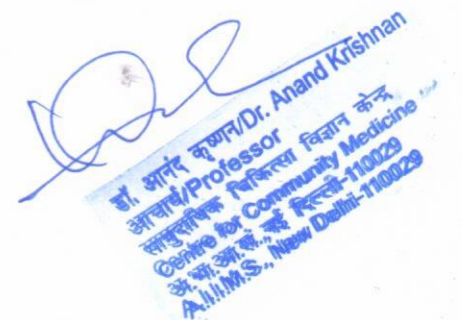 डॉ. आनंद कृष्णन/Dr. Anand Krishnan
आचार्य/Professor
सामुदायिक चिकित्सा विज्ञान केन्द्र
Centre for Community Medicine
अ.भा.आ.सं., नई दिल्ली-110029
A.I.I.M.S., New Delhi-110029